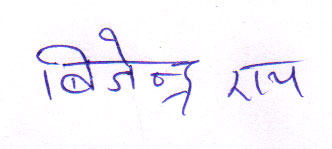 बिजेन्द्र राय